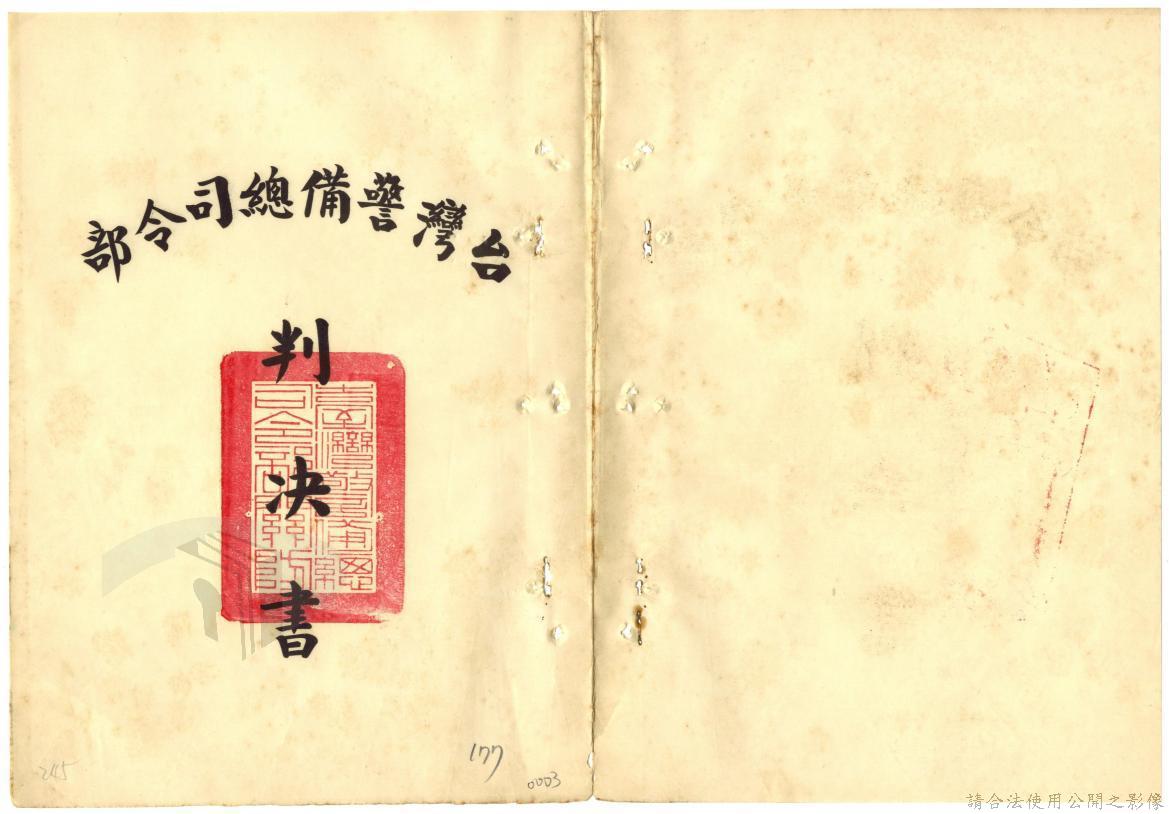 台灣警備總司令部
判決書
臺灣警備總
司令部關防
245
177
0003
請合法使用公開之影像